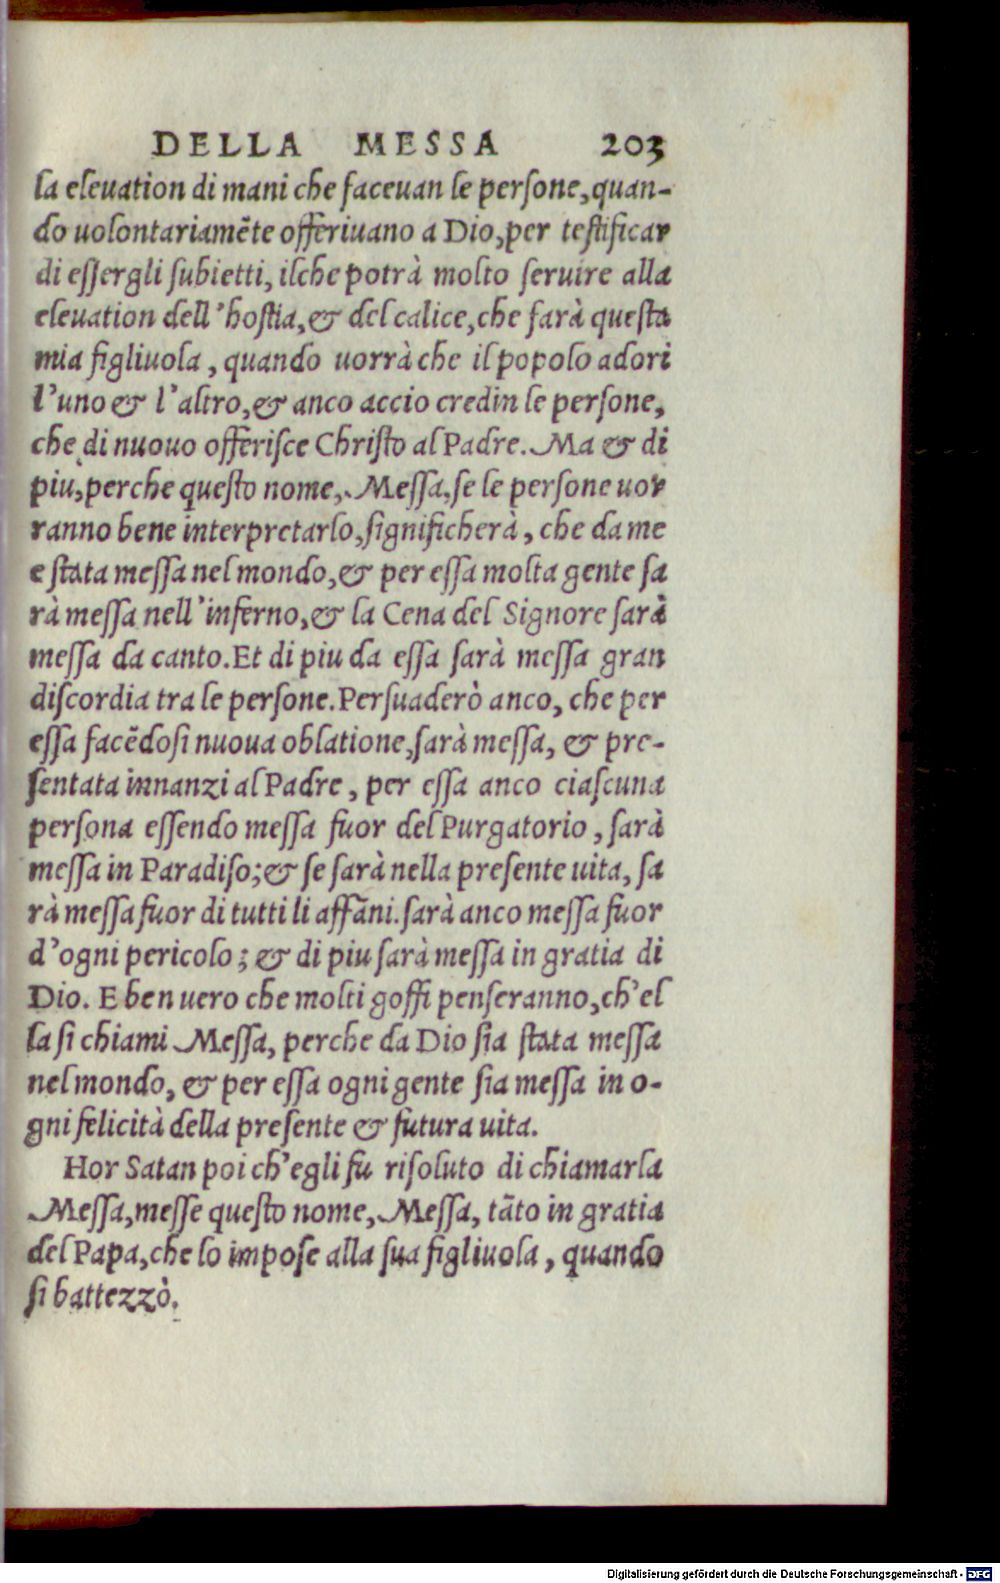 DELLA MESSA 203
la eleuation di mani che faceuan le perſone, quan-
do uolontariamẽte offeriuano a Dio, per teſtificar
di eſſergli ſubietti, ilche potrà molto ſeruire alla
eleuation dell'hoſtia, & del calice, che farà queſta
mia figliuola, quando uorrà che il popolo adori
l'uno & l'altro, & anco accio credin le perſone,
che di nuouo offeriſce Chriſto al Padre. Ma & di
piu, perche queſto nome, Meſſa, ſe le perſone uor
ranno bene interpretarlo, ſignificherà, che da me
e ſtata meſſa nel mondo, & per eſſa molta gente ſa
rà meſſa nell'inferno, & la Cena del Signore ſarà
meſſa da canto. Et di piu da eſſa ſarà meſſa gran
diſcordia tra le perſone. Perſuaderò anco, che per
eſſa facẽdoſi nuoua oblatione, ſarà meſſa, & pre-
ſentata innanzi al Padre, per eſſa anco ciaſcuna
perſona eſſendo meſſa fuor del Purgatorio, ſarà
meſſa in Paradiſo; & ſe ſarà nella preſente uita, ſa
rà meſſa fuor di tutti li affãni. ſarà anco meſſa fuor
d'ogni pericolo; & di piu ſarà meſſa in gratia di
Dio. E ben uero che molti goffi penſeranno, ch'el
la ſi chiami Meſſa, perche da Dio ſia ſtata meſſa
nel mondo, & per eſſa ogni gente ſia meſſa in o-
gni felicità della preſente & futura uita.
Hor Satan poi ch'egli fu riſoluto di chiamarla
Meſſa, meſſe queſto nome, Meſſa, tãto in gratia
del Papa, che lo impoſe alla ſua figliuola, quando
ſi battezzò.
Digitalisierung gefördert durch die Deutsche Forschungsgemeinschaft - DFG